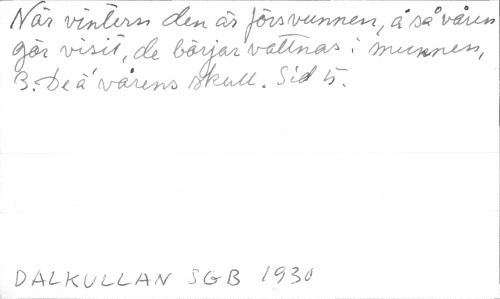 När vintern den är försvunnen, å så våren
gör visit, de börjar vattnas i munnen,
B. De ä' vårens skull. Sid 5.
DALKULLAN SGB 1930